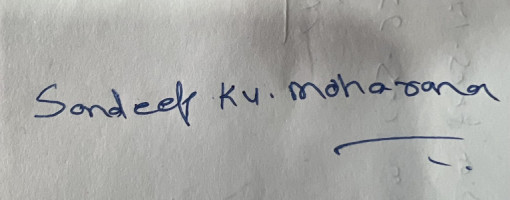 Sandeep Ku. moharana